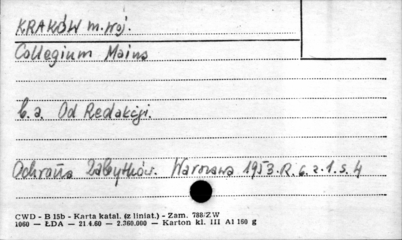 KRAKÓW m. woj.
Collegium Maius
b.a. Od Redakcji.
Ochrona Zabytków. Warszawa 1953. R. 6. z. 1. s. 4
CWD - B 15b - Karta katal. (z liniat.) - Zam. 788/ZW
1060 — ŁDA — 21 4.60 — 2.360.000 — Karton kl. III A1 160 g